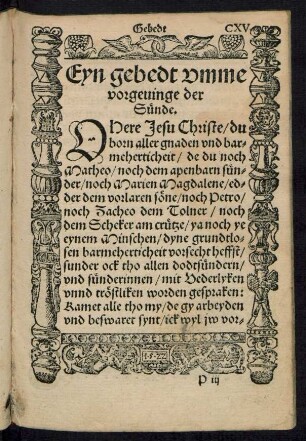 Gebedt CXV
Eyn gebedt vmme
vorgeuinge der
Sünde.
O Here Jesu Christe/du
born aller gnaden vnd bar-
meherticheit/de du noch
Matheo/noch dem apenbarn sün-
der/noch Marien Magdalene/ed-
der dem vorlaren söne/noch Petro/
noch Zacheo dem Tolner/noch
dem Scheker am crütze/ya noch ye
eynem Minschen/dyne grundtlo-
sen barmeherticheit vorsecht heffst/
sunder ock tho allen dodtsündern/
vnd sünderinnen/mit Vederlyken
vnnd tröstliken worden gespraken:
Kamet alle tho my/de gy arbeyden
vnd beswaret synt/ick wyl jw vor-
1522
P iij